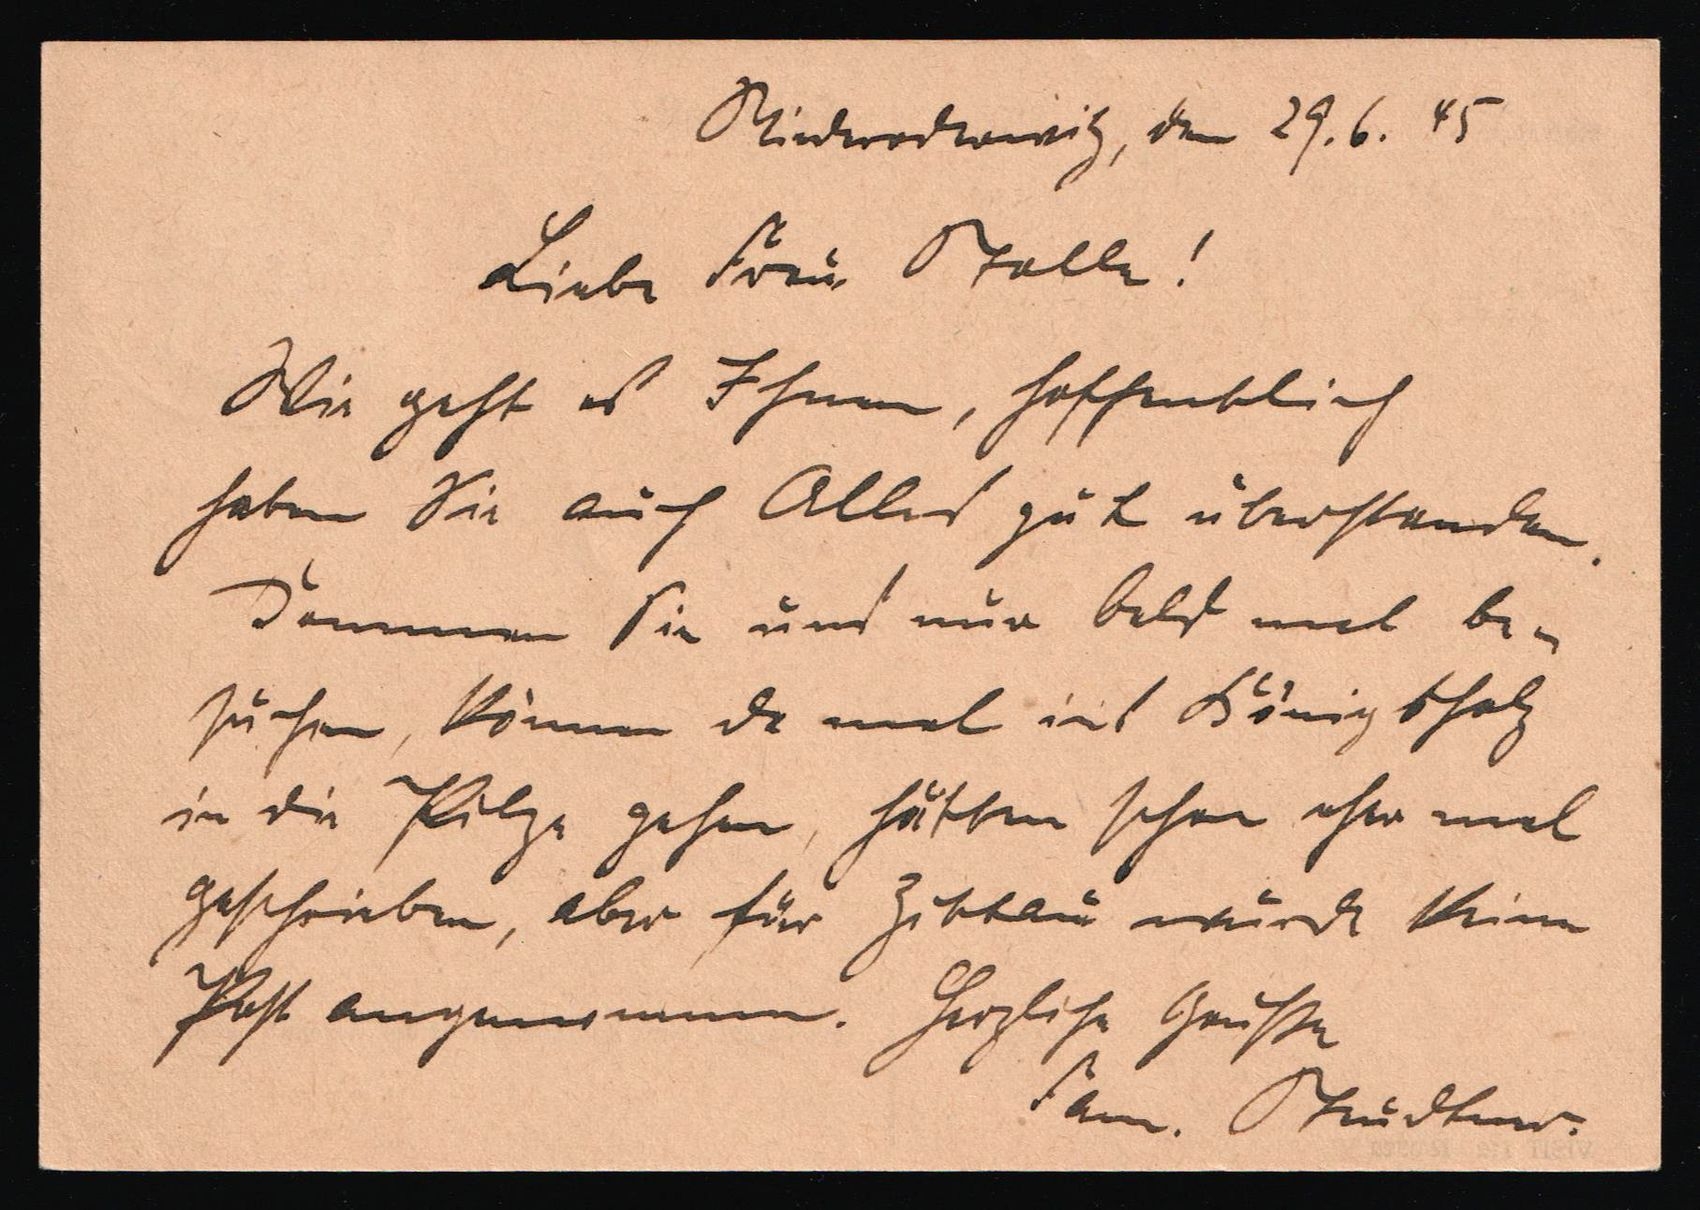 Niederoderwitz, den 29.6. 45
Liebe Frau Nolle!
Wie geht es Ihnen, hoffentlich
haben Sie auch Alles gut überstanden.
Kommen Sie uns nur bald mal be-
suchen, können da mal ins Königsholz
in die Pilze gehen, hätten schon eher mal
geschrieben, aber für Zittau wurde keine
Post angenommen. Herzliche Grüsse
Fam.